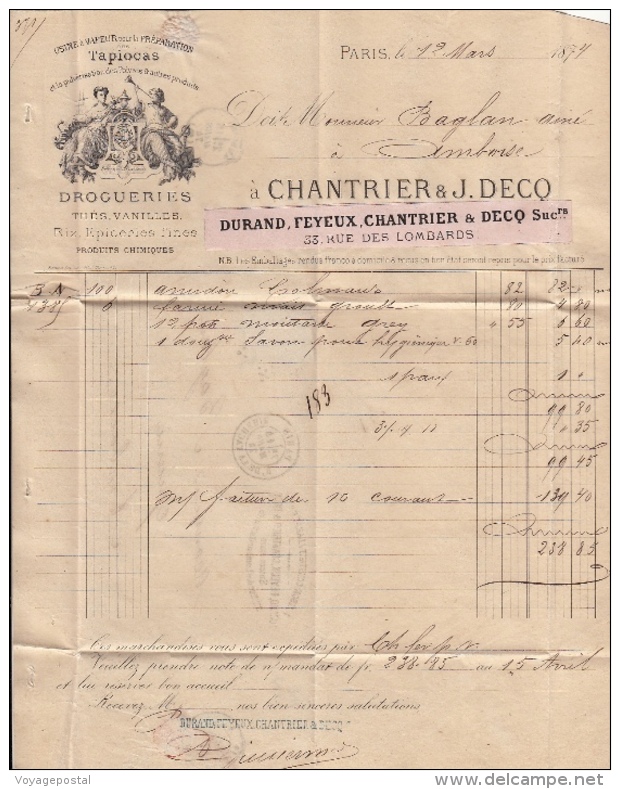 USINE à VAPEUR pour la PRÉPARATION
des
Tapiocas
et la pulvérisation des Poivres & autres produits
PARIS, le 12 Mars 1874
Doit Monsieur Baglan ainé
à Amboise
DROGUERIES
THÉS, VANILLES,
Riz, Épiceries fines
PRODUITS CHIMIQUES
à CHANTRIER & J. DECQ
DURAND, FEYEUX, CHANTRIER & DECQ Sucrs
33, RUE DES LOMBARDS
N.B. Les Emballages rendus franco à domicile & reçus en bon état seront repris pour le prix facturé
B A 100 amidon 82 82
6 farine maïs 80 4 80
12 pots moutarde grey " 55 6 60
1 douzne Savon 5 40
1 paux 1 "
99 80
" 35
99 45
183
facture du 10 courant 139 40
238 85
Ces marchandises vous sont expédiées par
Veuillez prendre note de n/ mandat de fr. 238.85 au 15 Avril
et lui réserver bon accueil.
Recevez M nos bien sincères salutations
DURAND, FEYEUX, CHANTRIER & DECQ
Voyagepostal
delcampe.net